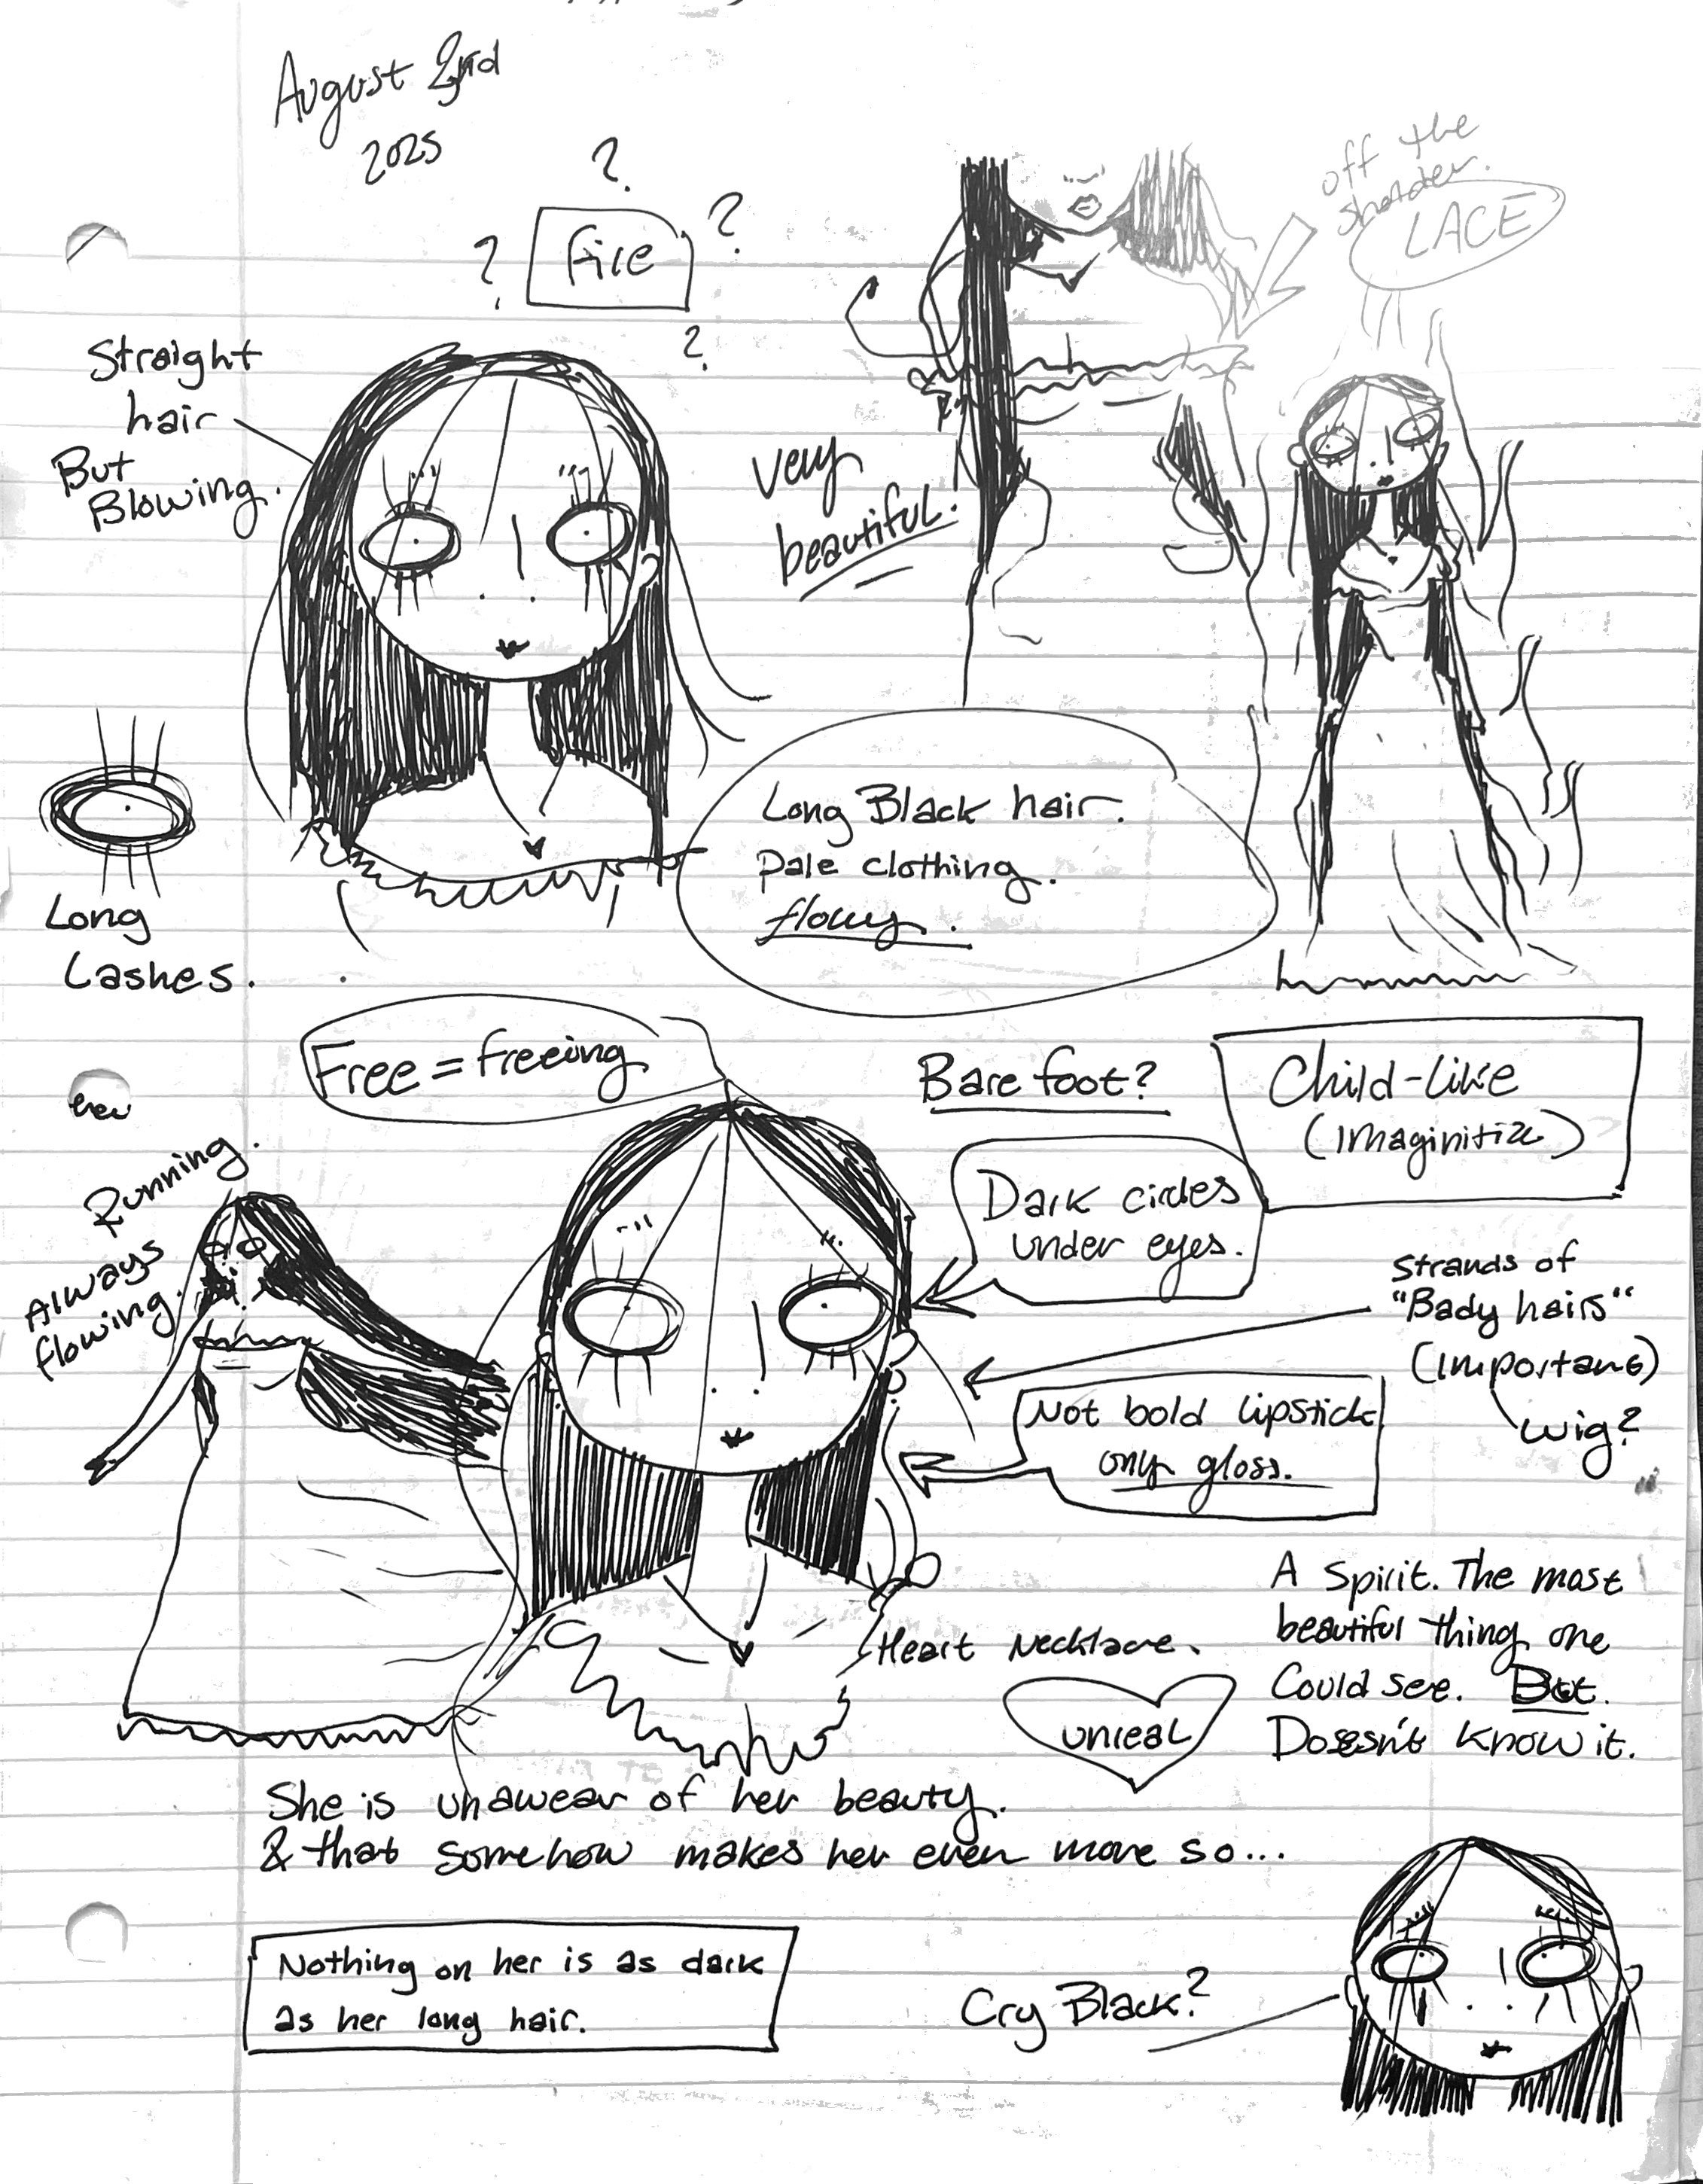 August 2nd
2025
?
?
?
?
Fire
off the
sholder.
LACE
Straight
hair
But
Blowing.
very
beautiful.
Long Black hair.
Pale clothing.
flowy.
Long
Lashes.
Free = freeing
Bare foot?
Child-Like
Running.
Always
flowing.
Dark circles
under eyes.
Strands of
"Bady hairs"
wig?
Not bold lipstick
only gloss.
A Spirit. The most
beautiful thing one
Could see. But.
Doesn't know it.
Heart Necklace.
unreal
She is unawear of her beauty.
& that somehow makes her even more so...
Nothing on her is as dark
as her long hair.
Cry Black?